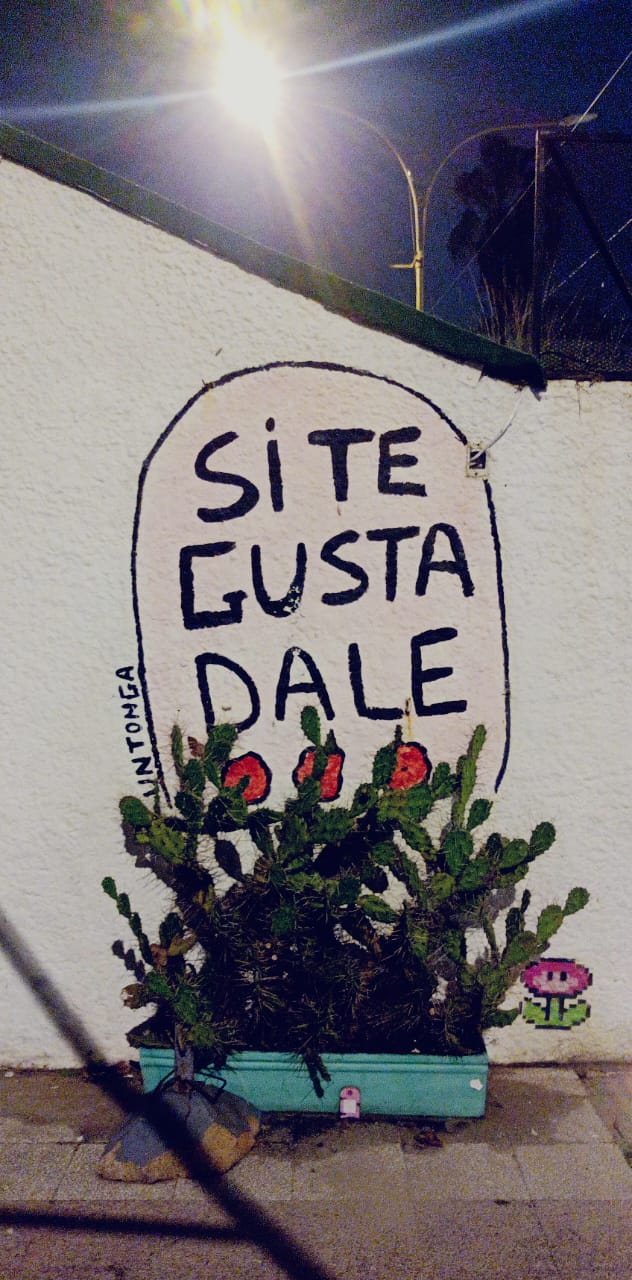 Si TE
GUSTA
DALE
UNTONGA